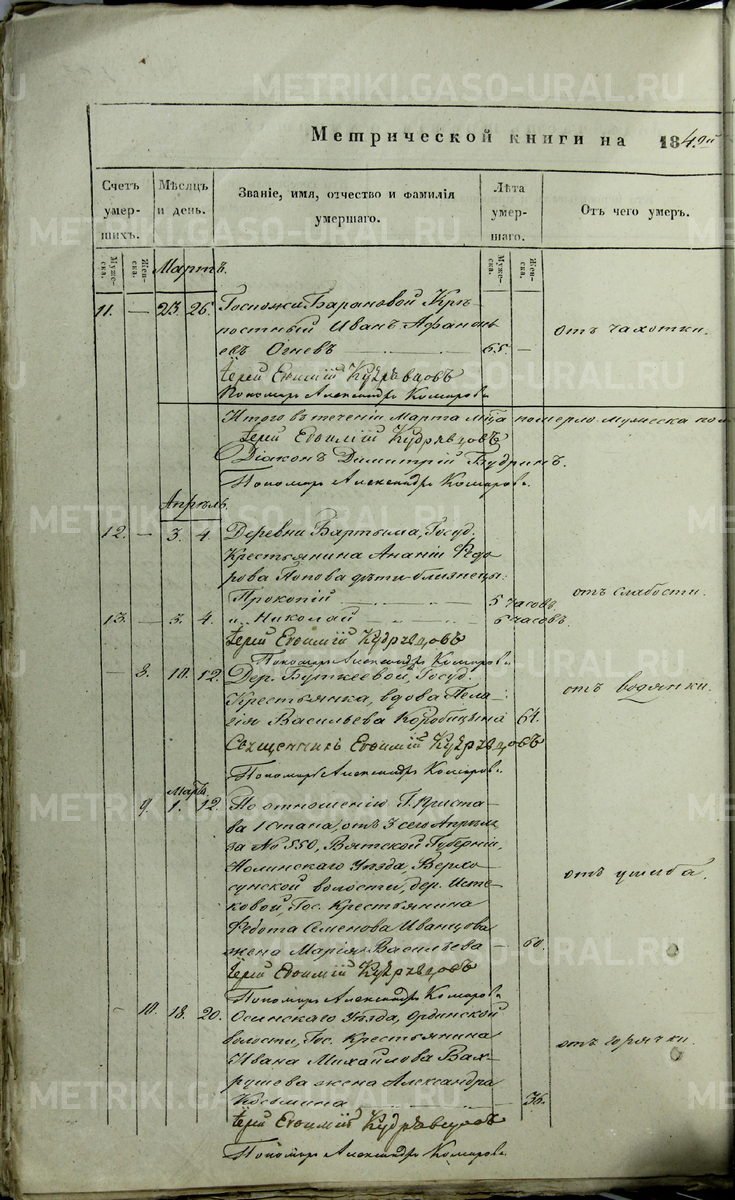 Метрической книги на 184. го
Счетъ умер- шихъ. Мѣсяцъ и день. Званіе, имя, отчество и фамилія умершаго. Лѣта умер- шаго. Отъ чего умеръ.
Муже- ска. Жен- ска. Муже- ска. Жен- ска.
Мартъ.
11. — 23. 26. Госпожи Барановой Крѣ-
постный Иванъ Афанась
евъ Огневъ 65. — отъ чахотки.
Іерей Евѳимій Кудрявцовъ
Пономарь Александръ Комаровъ
Итого въ теченіи Марта м-ца померло мужеска пол
Іерей Евѳимій Кудрявцовъ
Діаконъ Димитрій Будринъ.
Пономарь Александръ Комаровъ
Апрѣль.
12. — 3. 4. Деревни Бартыма, Госуд.
Крестьянина Ананіи Ѳедо
рова Попова дѣти близнецы:
Прокопій 5 часовъ отъ слабости.
13. — 3. 4. и Николай 6 часовъ.
Іерей Евѳимій Кудрявцовъ
Пономарь Александръ Комаровъ
— 8. 10. 12. Дер. Буткеевой, Госуд.
Крестьянка, вдова Пела
гія Васильева Коробицына 64. отъ водянки.
Священникъ Евѳимій Кудрявцовъ
Пономарь Александръ Комаровъ
Мартъ.
9. 1. 12. По отношенію Г. Приста-
ва 1 Стана, отъ 3 сего Апрѣля
за № 550, Вятской Губерніи,
Нолинскаго Уѣзда, Верхо-
сунской волости, дер. Исте-
ковой, Гос. Крестьянина
Ѳедота Семенова Иванцова
жена Марія Васильева — 60. отъ ушиба.
Іерей Евѳимій Кудрявцовъ
Пономарь Александръ Комаровъ
— 10. 18. 20. Осинскаго Уѣзда, Ординской
волости, Гос. Крестьянина
Ивана Михайлова Вах-
рушева жена Александра
Козьмина 36. отъ горячки.
Іерей Евѳимій Кудрявцовъ
Пономарь Александръ Комаровъ
METRIKI.GASO-URAL.RU